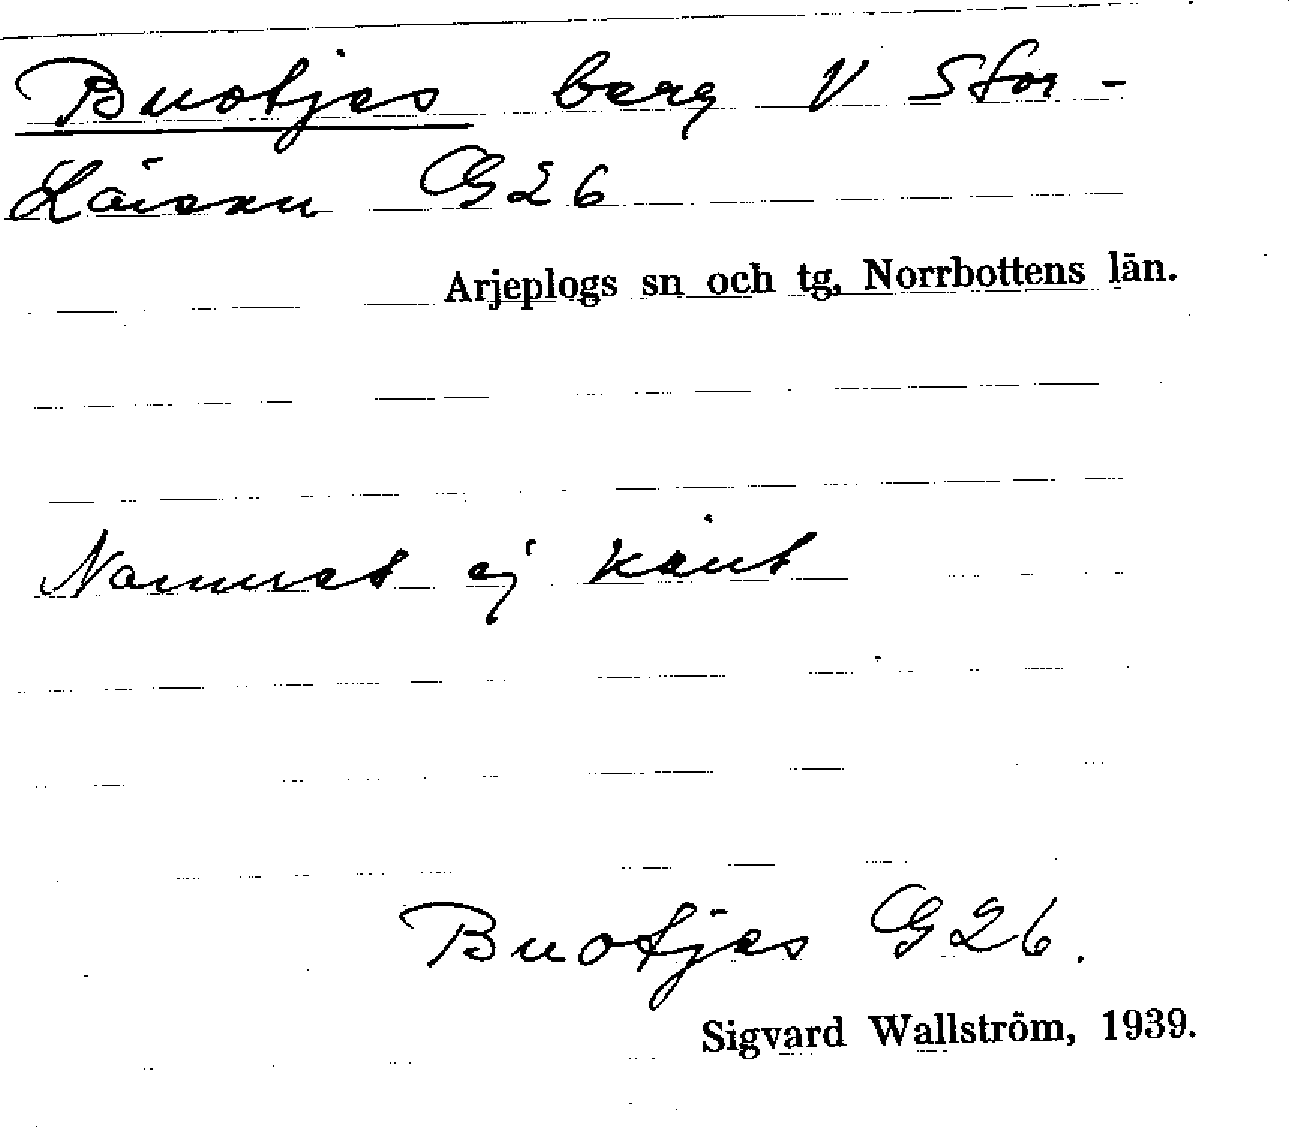 Buotjes berg V Stor-
Laisan G26
Arjeplogs sn och tg, Norrbottens län.
Namnet ej känt
Buotjes G26.
Sigvard Wallström, 1939.